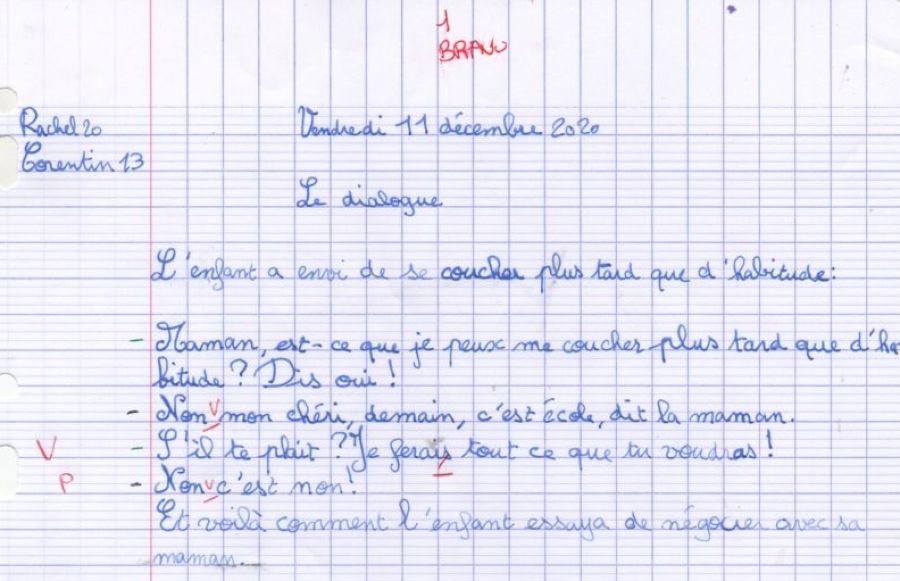 1
BRAVO
Rachel 20 Vendredi 11 décembre 2020
Corentin 13
Le dialogue
L'enfant a envi de se coucher plus tard que d'habitude:
- Maman, est-ce que je peux me coucher plus tard que d'ha
bitude ? Dis oui !
- Non v mon chéri, demain, c'est école, dit la maman.
V - S'il te plait ? Je ferais tout ce que tu voudras !
P - Non v c'est non !
Et voilà comment l'enfant essaya de négocier avec sa
maman.